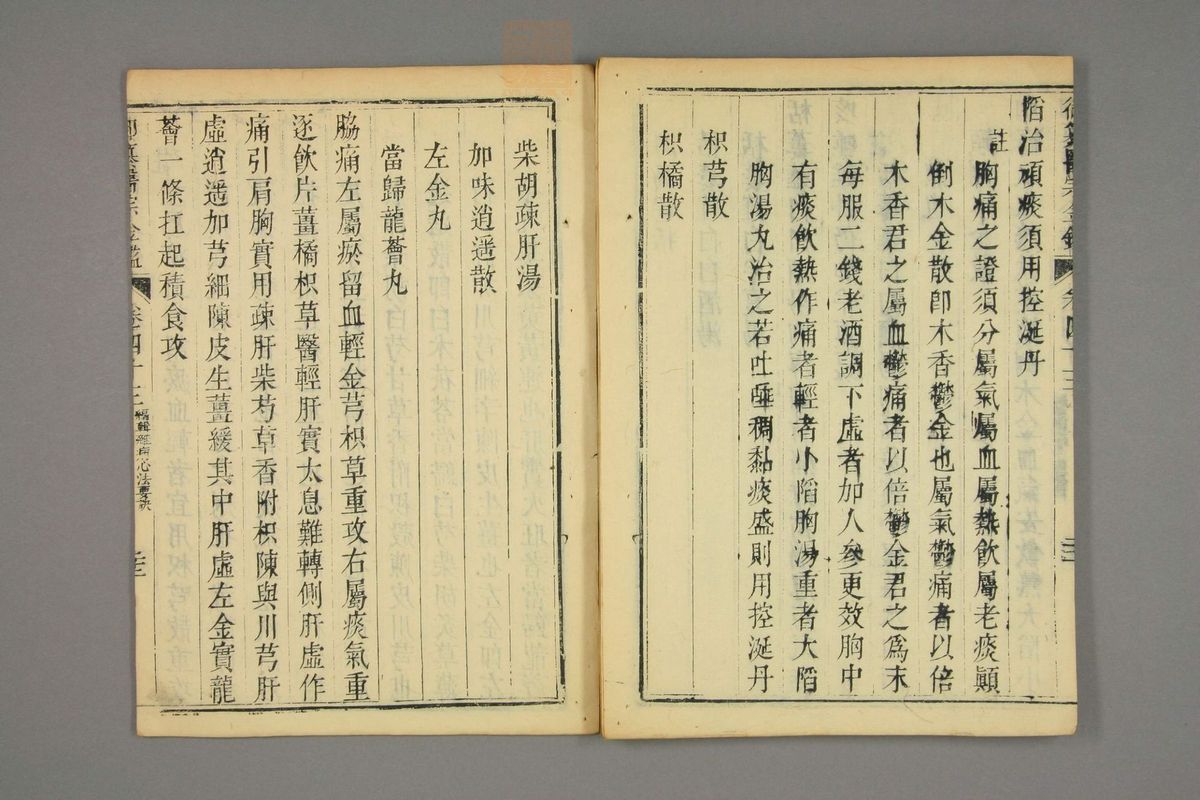 陷治頑痰須用控涎丹
註胸痛之證須分屬氣屬血屬熱飲屬老痰顛
倒木金散卽木香鬱金也屬氣鬱痛者以倍
木香君之屬血鬱痛者以倍鬱金君之爲末
每服二錢老酒調下虛者加人參更效胸中
有痰飲熱作痛者輕者小陷胸湯重者大陷
胸湯丸治之若吐唾稠黏痰盛則用控涎丹
枳芎散
枳橘散
柴胡疎肝湯
加味逍遥散
左金丸
當歸龍薈丸
脇痛左屬瘀留血輕金芎枳草重攻右屬痰氣重
逐飲片薑橘枳草醫輕肝實太息難轉側肝虛作
痛引肩胸實用疎肝柴芍草香附枳陳與川芎肝
虛逍遥加芎細陳皮生薑緩其中肝虛左金實龍
薈一條扛起積食攻